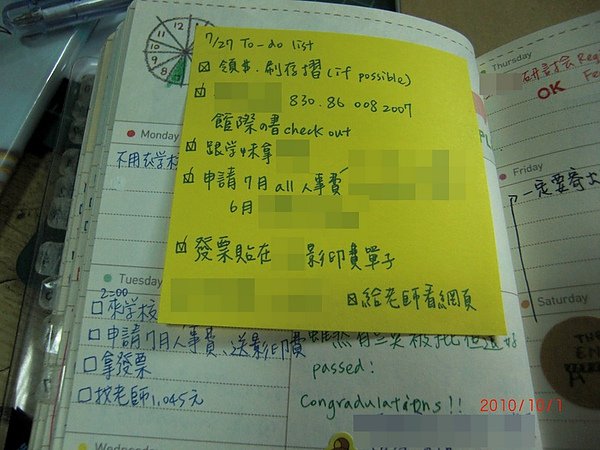 7/27 To-do list
領書.刷存摺(if possible)
830.86 008 2007
館際の書 check out
跟学妹拿
申請7月 all 人事費
6月
發票貼在 影印費單子
給老師看網頁
12
11
10
9
8
Monday
不用去学校
Tuesday
2:00
來学校
申請7月人事費、送影印費
拿發票
找老師1,045元
passed:
Congradulations!!
Wednesday
Thursday
研討会 Reg
OK Fe
Friday
一定要寄
Saturday
THE
END
2010/10/1